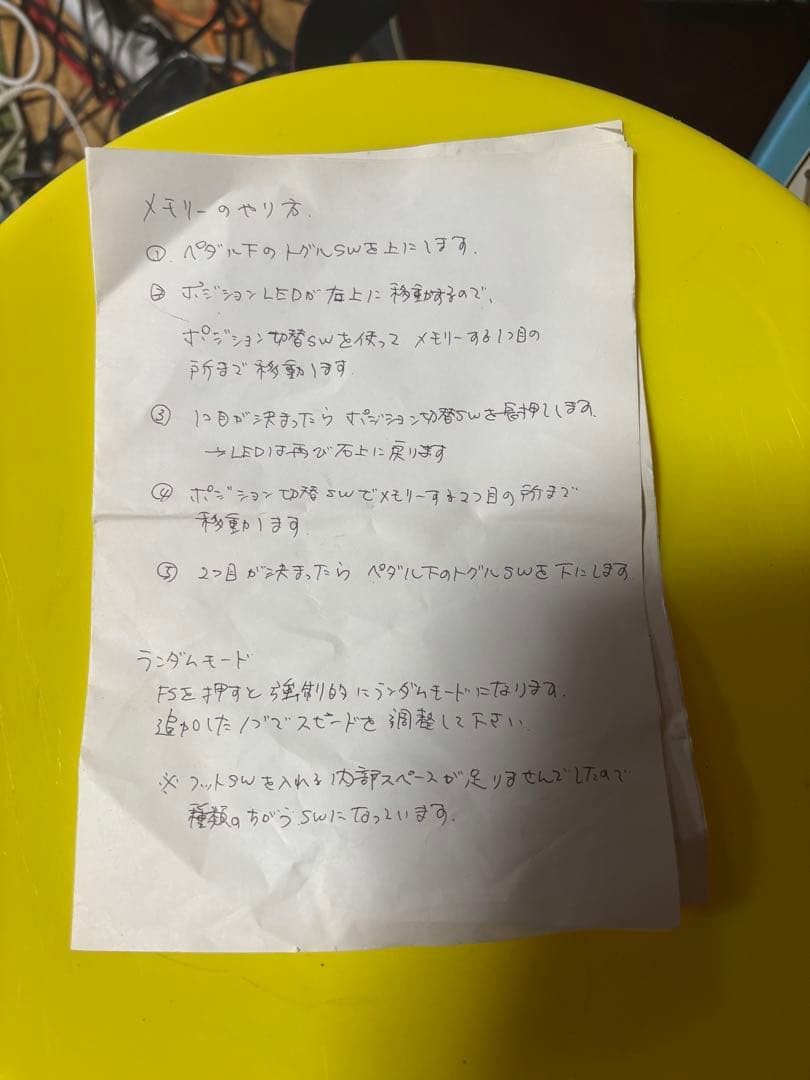 メモリーのやり方.
① ペダル下のトグルSWを上にします.
② ポジションLEDが右上に移動するので、
ポジション切替SWを使って メモリーする1つ目の
所まで移動します.
③ 1つ目が決まったら ポジション切替SWを長押しします.
→LEDは再び右上に戻ります
④ ポジション切替SWでメモリーする2つ目の所まで
移動します.
⑤ 2つ目が決まったら ペダル下のトグルSWを下にします.
ランダムモード
FSを押すと強制的にランダムモードになります.
追加したノブでスピードを調整して下さい.
※ フットSWを入れる内部スペースが足りませんでしたので
種類のちがうSWになっています.